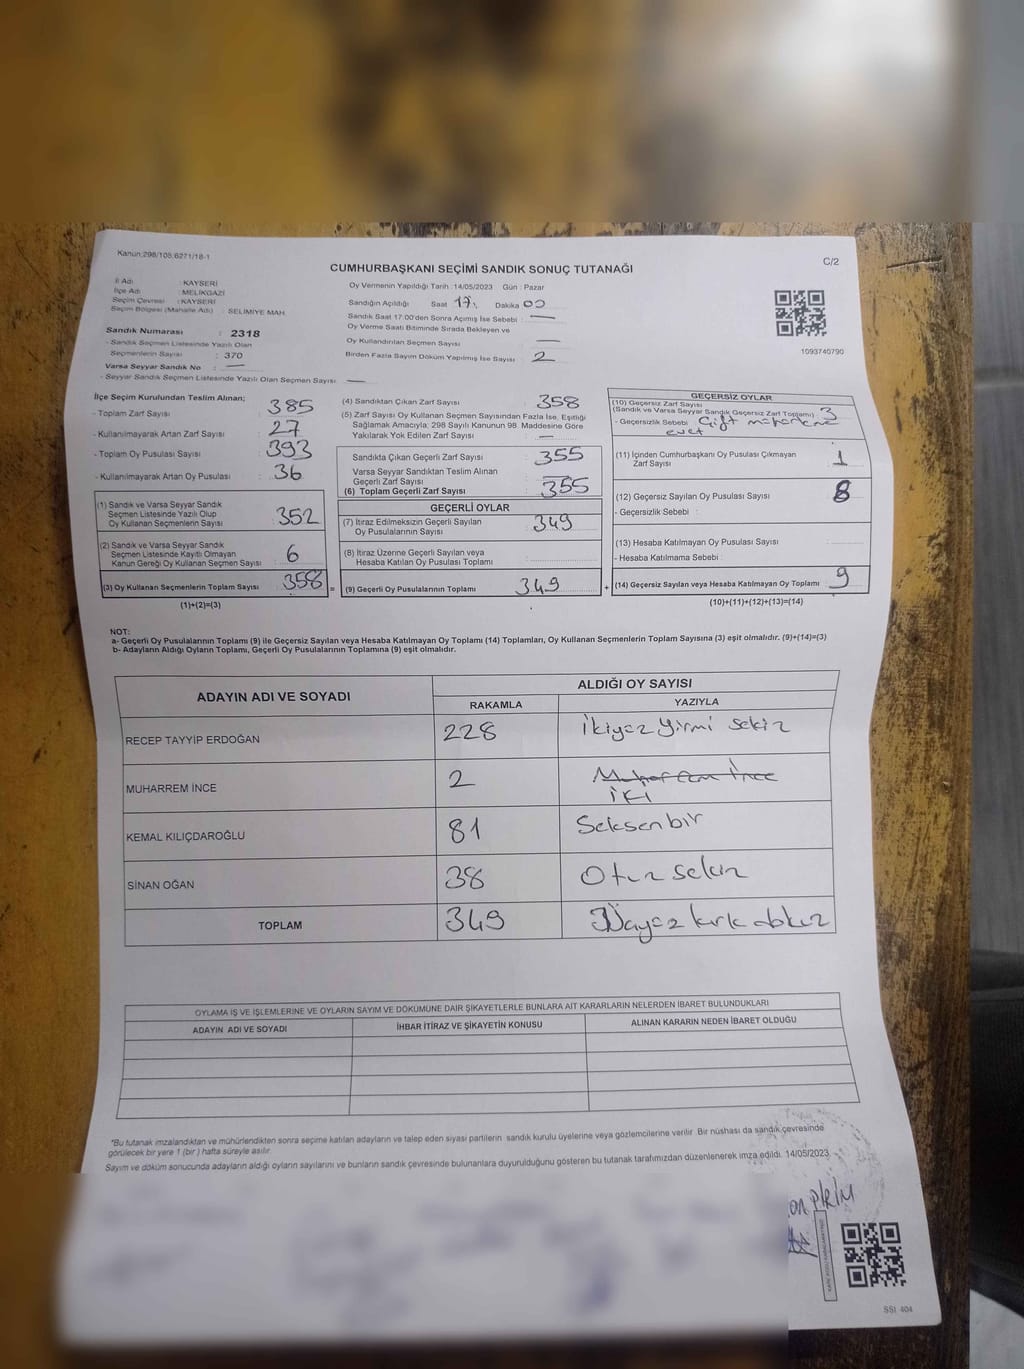 Kanun:298/105;6271/18-1
C/2
CUMHURBAŞKANI SEÇİMİ SANDIK SONUÇ TUTANAĞI
İl Adı : KAYSERİ
İlçe Adı : MELİKGAZİ
Seçim Çevresi : KAYSERİ
Seçim Bölgesi (Mahalle Adı) : SELİMİYE MAH.
Sandık Numarası : 2318
- Sandık Seçmen Listesinde Yazılı Olan
Seçmenlerin Sayısı : 370
Varsa Seyyar Sandık No : —
- Seyyar Sandık Seçmen Listesinde Yazılı Olan Seçmen Sayısı : —
Oy Vermenin Yapıldığı Tarih :14/05/2023 Gün : Pazar
Sandığın Açıldığı Saat 17 Dakika 00
Sandık Saat 17:00'den Sonra Açımış İse Sebebi : —
Oy Verme Saati Bitiminde Sırada Bekleyen ve
Oy Kullandırılan Seçmen Sayısı : —
Birden Fazla Sayım Döküm Yapılmış İse Sayısı : 2
1093740790
İlçe Seçim Kurulundan Teslim Alınan;
- Toplam Zarf Sayısı : 385
- Kullanılmayarak Artan Zarf Sayısı : 27
- Toplam Oy Pusulası Sayısı : 393
- Kullanılmayarak Artan Oy Pusulası : 36
(1) Sandık ve Varsa Seyyar Sandık
Seçmen Listesinde Yazılı Olup
Oy Kullanan Seçmenlerin Sayısı : 352
(2) Sandık ve Varsa Seyyar Sandık
Seçmen Listesinde Kayıtlı Olmayan
Kanun Gereği Oy Kullanan Seçmen Sayısı : 6
(3) Oy Kullanan Seçmenlerin Toplam Sayısı : 358
(1)+(2)=(3)
=
(4) Sandıktan Çıkan Zarf Sayısı : 358
(5) Zarf Sayısı Oy Kullanan Seçmen Sayısından Fazla İse, Eşitliği
Sağlamak Amacıyla; 298 Sayılı Kanunun 98. Maddesine Göre
Yakılarak Yok Edilen Zarf Sayısı : —
Sandıkta Çıkan Geçerli Zarf Sayısı : 355
Varsa Seyyar Sandıktan Teslim Alınan
Geçerli Zarf Sayısı : —
(6) Toplam Geçerli Zarf Sayısı : 355
GEÇERLİ OYLAR
(7) İtiraz Edilmeksizin Geçerli Sayılan
Oy Pusulalarının Sayısı : 349
(8) İtiraz Üzerine Geçerli Sayılan veya
Hesaba Katılan Oy Pusulası Toplamı :
(9) Geçerli Oy Pusulalarının Toplamı : 349
+
GEÇERSİZ OYLAR
(10) Geçersiz Zarf Sayısı
(Sandık ve Varsa Seyyar Sandık Geçersiz Zarf Toplamı) 3
- Geçersizlik Sebebi : Çift
evet
(11) İçinden Cumhurbaşkanı Oy Pusulası Çıkmayan
Zarf Sayısı : 1
(12) Geçersiz Sayılan Oy Pusulası Sayısı : 8
- Geçersizlik Sebebi :
(13) Hesaba Katılmayan Oy Pusulası Sayısı :
- Hesaba Katılmama Sebebi :
(14) Geçersiz Sayılan veya Hesaba Katılmayan Oy Toplamı : 9
(10)+(11)+(12)+(13)=(14)
NOT:
a- Geçerli Oy Pusulalarının Toplamı (9) ile Geçersiz Sayılan veya Hesaba Katılmayan Oy Toplamı (14) Toplamları, Oy Kullanan Seçmenlerin Toplam Sayısına (3) eşit olmalıdır. (9)+(14)=(3)
b- Adayların Aldığı Oyların Toplamı, Geçerli Oy Pusulalarının Toplamına (9) eşit olmalıdır.
ADAYIN ADI VE SOYADI
ALDIĞI OY SAYISI
RAKAMLA YAZIYLA
RECEP TAYYİP ERDOĞAN 228 İkiyüz Yirmi Sekiz
MUHARREM İNCE 2 Muharrem İnce
İKİ
KEMAL KILIÇDAROĞLU 81 Seksen bir
SİNAN OĞAN 38 Otuz sekiz
TOPLAM 349 Üçyüz kırk dokuz
OYLAMA İŞ VE İŞLEMLERİNE VE OYLARIN SAYIM VE DÖKÜMÜNE DAİR ŞİKAYETLERLE BUNLARA AİT KARARLARIN NELERDEN İBARET BULUNDUKLARI
ADAYIN ADI VE SOYADI İHBAR İTİRAZ VE ŞİKAYETİN KONUSU ALINAN KARARIN NEDEN İBARET OLDUĞU
*Bu tutanak imzalandıktan ve mühürlendikten sonra seçime katılan adayların ve talep eden siyasi partilerin sandık kurulu üyelerine veya gözlemcilerine verilir. Bir nüshası da sandık çevresinde
görülecek bir yere 1 (bir) hafta süreyle asılır.
Sayım ve döküm sonucunda adayların aldığı oyların sayılarını ve bunların sandık çevresinde bulunanlara duyurulduğunu gösteren bu tutanak tarafımızdan düzenlenerek imza edildi. 14/05/2023
SSI 404